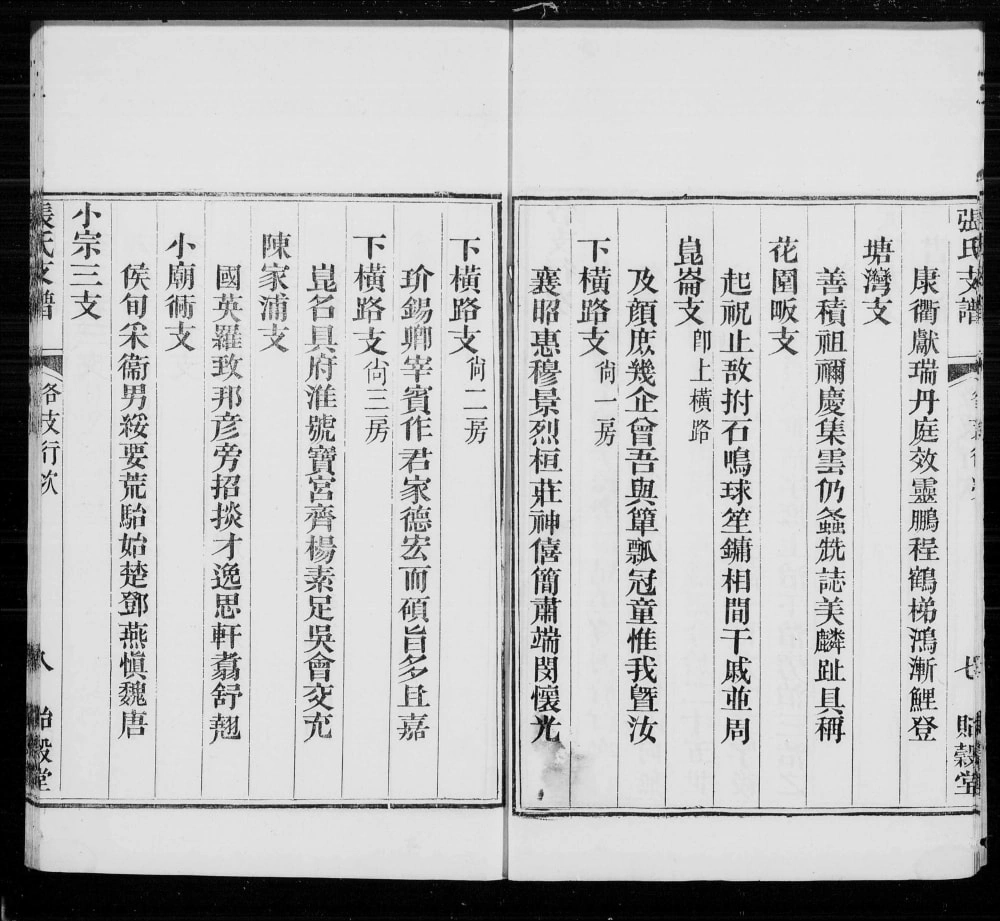 張氏支譜
七
貽穀堂
康衢獻瑞丹庭效靈鵬程鶴梯鴻漸鯉登
塘灣支
善積祖禰慶集雲仍螽詵誌美麟趾具稱
花園畈支
起祝止敔拊石鳴球笙鏞相間干戚並周
崑崙支 卽上橫路
及顏庶幾企曾吾與簞瓢冠童惟我曁汝
下橫路支 尙一房
襄昭惠穆景烈桓莊神僖簡肅端閔懷光
下橫路支 尙二房
玠錫卿宰賓作君家德宏而碩旨多且嘉
下橫路支 尙三房
崑名具府淮號寶宮齊楊素足吳會交充
陳家浦支
國英羅致邦彥旁招掞才逸思軒翥舒翹
小廟衖支
侯甸采衞男綏要荒駘始楚鄧燕愼魏唐
小宗三支
張氏支譜
各支行次
八
貽穀堂